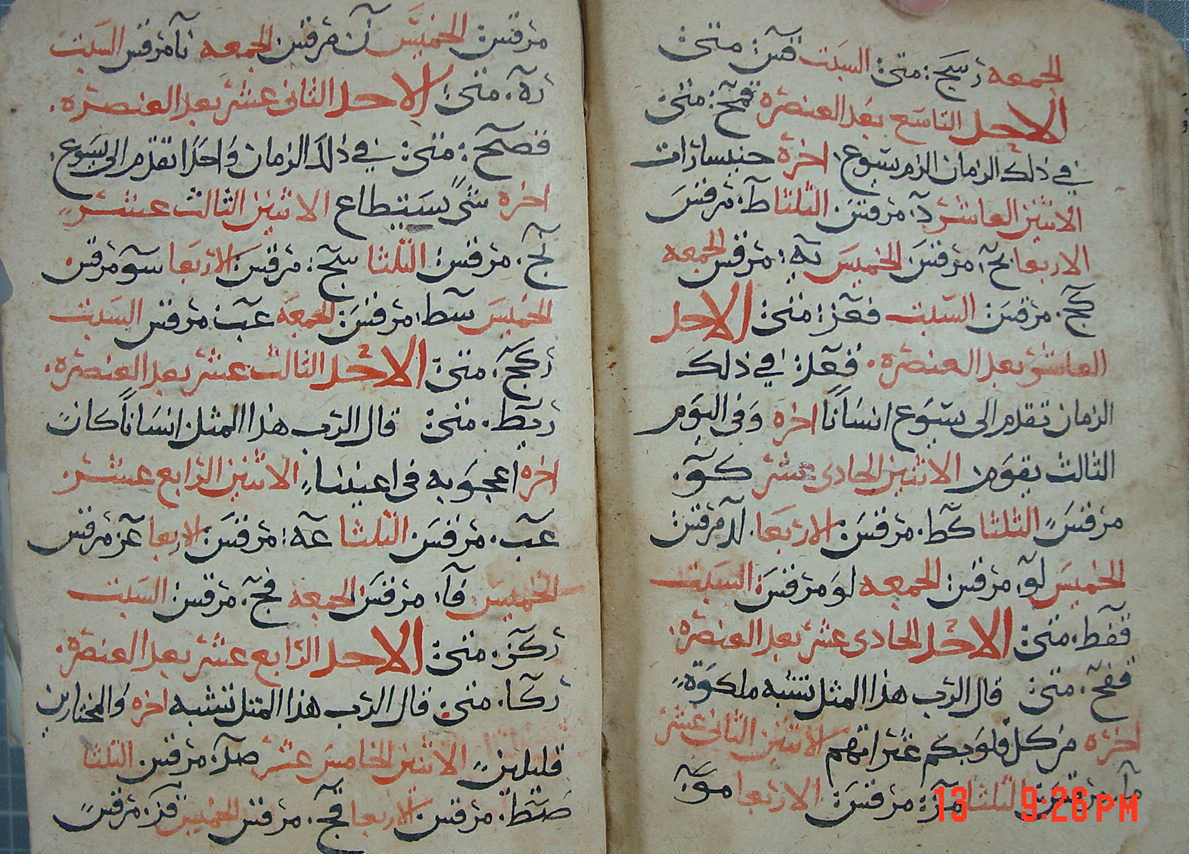 الجمعه رسج: متى: السبت قس: متى:
الاحد التاسع بعد العنصره قمح: متى:
في ذلك الزمان الزم يسوع: اخره جنيسارات
الاثنين العاشر د: مرقس: الثلثا ط: مرقس
الاربعا يح: مرقس الخميس به: مرقس الجمعه
كح: مرقس: السبت قعز: متى: الاحد
العاشر بعد العنصره. قعد: في ذلك
الزمان تقدم الى يسوع انسانًا اخره وفى اليوم
الثالث يقوم: الاثنين الحادى عشر كو:
مرقس الثلثا كط. مرقس الاربعا. لد مرقس
الخميس لو: مرقس: الجمعه لو مرقس: السبت
قفط. متى: الاحد الحادى عشر بعد العنصره:
قفح: متى: قال الرب هذا المثل تشبه ملكوة:
اخره من كل قلوبكم عثراتهم الاثنين الثانى عشر
ما: مرقس: الثلثا مز: مرقس: الاربعا مو:
13 9:26 PM
مرقس: الخميس ن: مرقس: الجمعه نا مرقس السبت
ره. متى: الاحد الثانى عشر بعد العنصره.
قصح: متى: في ذلك الزمان واحدًا تقدم الى يسوع
اخره شي يستطاع الاثنين الثالث عشر:
لج. مرقس: الثلثا سح: مرقس: الاربعا سو مرقس.
الخميس سط: مرقس: الجمعه عب: مرقس السبت
ركح: متى: الاحد الثالث عشر بعد العنصره.
ريط. متى: قال الرب هذا المثل انسانًا كان
اخره اعجوبه فى اعيننا: الاثنين الرابع عشر.
عب. مرقس. الثلثا عه: مرقس: الاربعا عز مرقس
الخميس فا: مرقس الجمعه فح: مرقس: السبت
ركز. متى: الاحد الرابع عشر بعد العنصره.
ركا. متى: قال الرب هذا المثل تشبه اخره والمختارين
قليلين الاثنين الخامس عشر صد: مرقس الثلثا
صط: مرقس. الاربعا قح. مرقس الخميس قز. مرقس